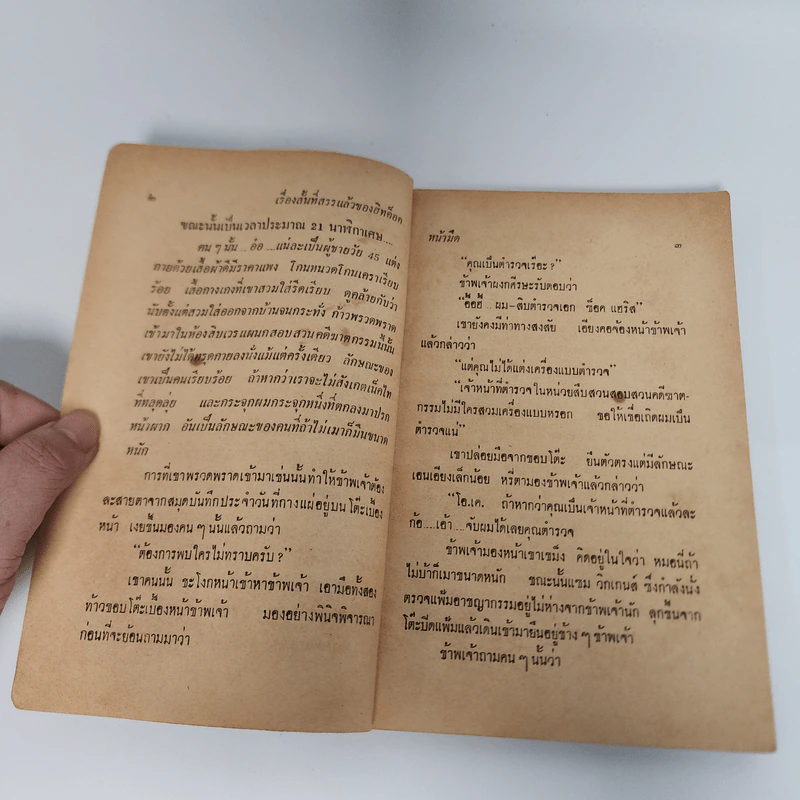 ๒
เรื่องสั้นที่สรรแล้วของฮิทค็อค
ขณะนั้นเป็นเวลาประมาณ 21 นาฬิกาเศษ....
คน ๆ นั้น ...อ๋อ ....แน่ละเป็นผู้ชายวัย 45 แต่ง
กายด้วยเสื้อผ้าดีมีราคาแพง โกนหนวดโกนเคราเรียบ
ร้อย เสื้อกางเกงที่เขาสวมใส่รีดเรียบ ดูคล้ายกับว่า
นับตั้งแต่สวมใส่ออกจากบ้านจนกระทั่ง ก้าวพรวดพราด
เข้ามาในห้องสิบเวรแผนกสอบสวนคดีฆาตกรรมนี้นั้น
เขายังไม่ได้ทรุดกายลงนั่งแม้แต่ครั้งเดียว ลักษณะของ
เขาเป็นคนเรียบร้อย ถ้าหากว่าเราจะไม่สังเกตเน็คไท
ที่หลุดลุ่ย และกระจุกผมกระจุกหนึ่งที่ตกลงมาปรก
หน้าผาก อันเป็นลักษณะของคนที่ถ้าไม่เมาก็มึนขนาด
หนัก
การที่เขาพรวดพราดเข้ามาเช่นนั้นทำให้ข้าพเจ้าต้อง
ละสายตาจากสมุดบันทึกประจำวันที่กางแผ่อยู่บนโต๊ะเบื้อง
หน้า เงยขึ้นมองคน ๆ นั้นแล้วถามว่า
“ต้องการพบใครไม่ทราบครับ?”
เขาคนนั้น ชะโงกหน้าเข้าหาข้าพเจ้า เอามือทั้งสอง
ท้าวขอบโต๊ะเบื้องหน้าข้าพเจ้า มองอย่างพินิจพิจารณา
ก่อนที่จะย้อนถามมาว่า
หน้ามืด
๓
“คุณเป็นตำรวจเรียะ?”
ข้าพเจ้าผงกศีรษะรับตอบว่า
“ฮื่อฮื่ ... ผม-สิบตำรวจเอก ช็อค แฮริส”
เขายังคงมีท่าทางสงสัย เอียงคอจ้องหน้าข้าพเจ้า
แล้วกล่าวว่า
“แต่คุณไม่ได้แต่งเครื่องแบบตำรวจ”
“เจ้าหน้าที่ตำรวจในหน่วยสืบสวนสอบสวนคดีฆาต-
กรรมไม่มีใครสวมเครื่องแบบหรอก ขอให้เชื่อเถิดผมเป็น
ตำรวจแน่”
เขาปล่อยมือจากขอบโต๊ะ ยืนตัวตรงแต่มีลักษณะ
เอนเอียงเล็กน้อย หรี่ตามองข้าพเจ้าแล้วกล่าวว่า
“โอ.เค. ถ้าหากว่าคุณเป็นเจ้าหน้าที่ตำรวจแล้วละ
ก้อ....เอ้า....จับผมได้เลยคุณตำรวจ
ข้าพเจ้ามองหน้าเขาเขม็ง คิดอยู่ในใจว่า หมอนี่ถ้า
ไม่บ้าก็เมาขนาดหนัก ขณะนั้นแซม วิกเกนส์ ซึ่งกำลังนั่ง
ตรวจแฟ้มอาชญากรรมอยู่ไม่ห่างจากข้าพเจ้านัก ลุกขึ้นจาก
โต๊ะปิดแฟ้มแล้วเดินเข้ามายืนอยู่ข้าง ๆ ข้าพเจ้า
ข้าพเจ้าถามคน ๆ นั้นว่า